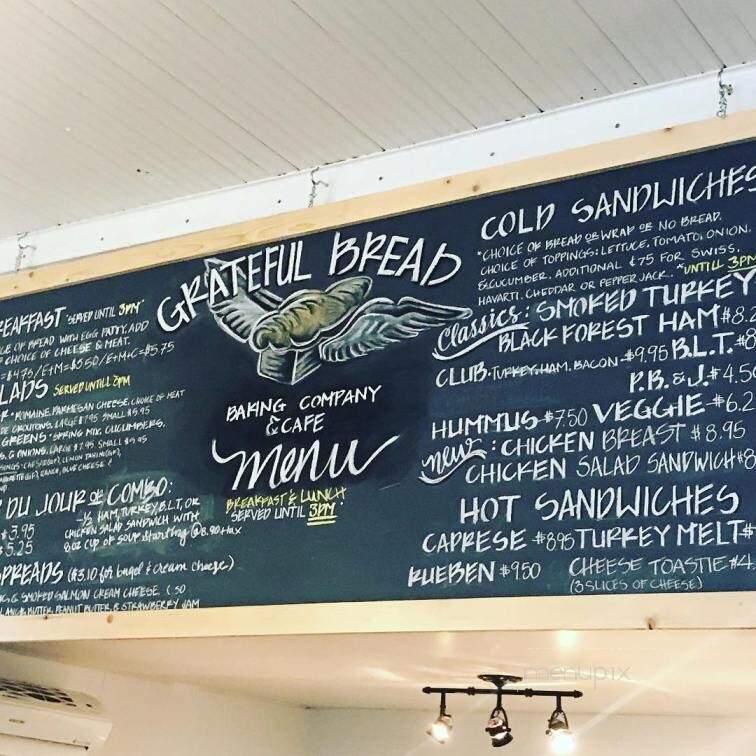 GRATEFUL BREAD
BAKING COMPANY
& CAFE
menu
BREAKFAST & LUNCH
SERVED UNTIL 3PM
REAKFAST SERVED UNTIL 3PM
CE OF BREAD WITH EGG PATTY, ADD
CHOICE OF CHEESE & MEAT.
=$4.75/E+M=$5.50/E+M+C=$5.75
LADS SERVED UNTILL 2PM
ROMAINE, PARMESAN CHEESE, CHOICE OF MEAT
CROUTONS. LARGE $7.95 SMALL $5.95
GREENS SPRING MIX, CUCUMBERS,
& ONIONS. LARGE $7.95 SMALL $5.95
RANCH, BLUE CHEESE
DU JOUR OR COMBO:
$3.95
$5.25
½ HAM, TURKEY, B.L.T, OR
CHICKEN SALAD SANDWICH WITH
8oz CUP OF SOUP. Starting @8.90+tax
PREADS ($3.10 for bagel & cream cheese)
& SMOKED SALMON CREAM CHEESE. 1.50
BUTTER, PEANUT BUTTER, & STRAWBERRY JAM
COLD SANDWICHES
*CHOICE OF BREAD OR WRAP OR NO BREAD.
CHOICE OF TOPPINGS: LETTUCE, TOMATO, ONION,
& CUCUMBER. ADDITIONAL $.75 FOR SWISS,
HAVARTI, CHEDDAR OR PEPPER JACK. *UNTILL 3PM
Classics: SMOKED TURKEY
BLACK FOREST HAM $8.2
CLUB: TURKEY, HAM, BACON-$9.95 B.L.T. $8
P.B. & J. $4.50
HUMMUS $7.50 VEGGIE $6.2
new: CHICKEN BREAST $8.95
CHICKEN SALAD SANDWICH $8
HOT SANDWICHES
CAPRESE $8.95 TURKEY MELT $
RUEBEN $9.50 CHEESE TOASTIE $4.
(3 SLICES OF CHEESE)
menupix